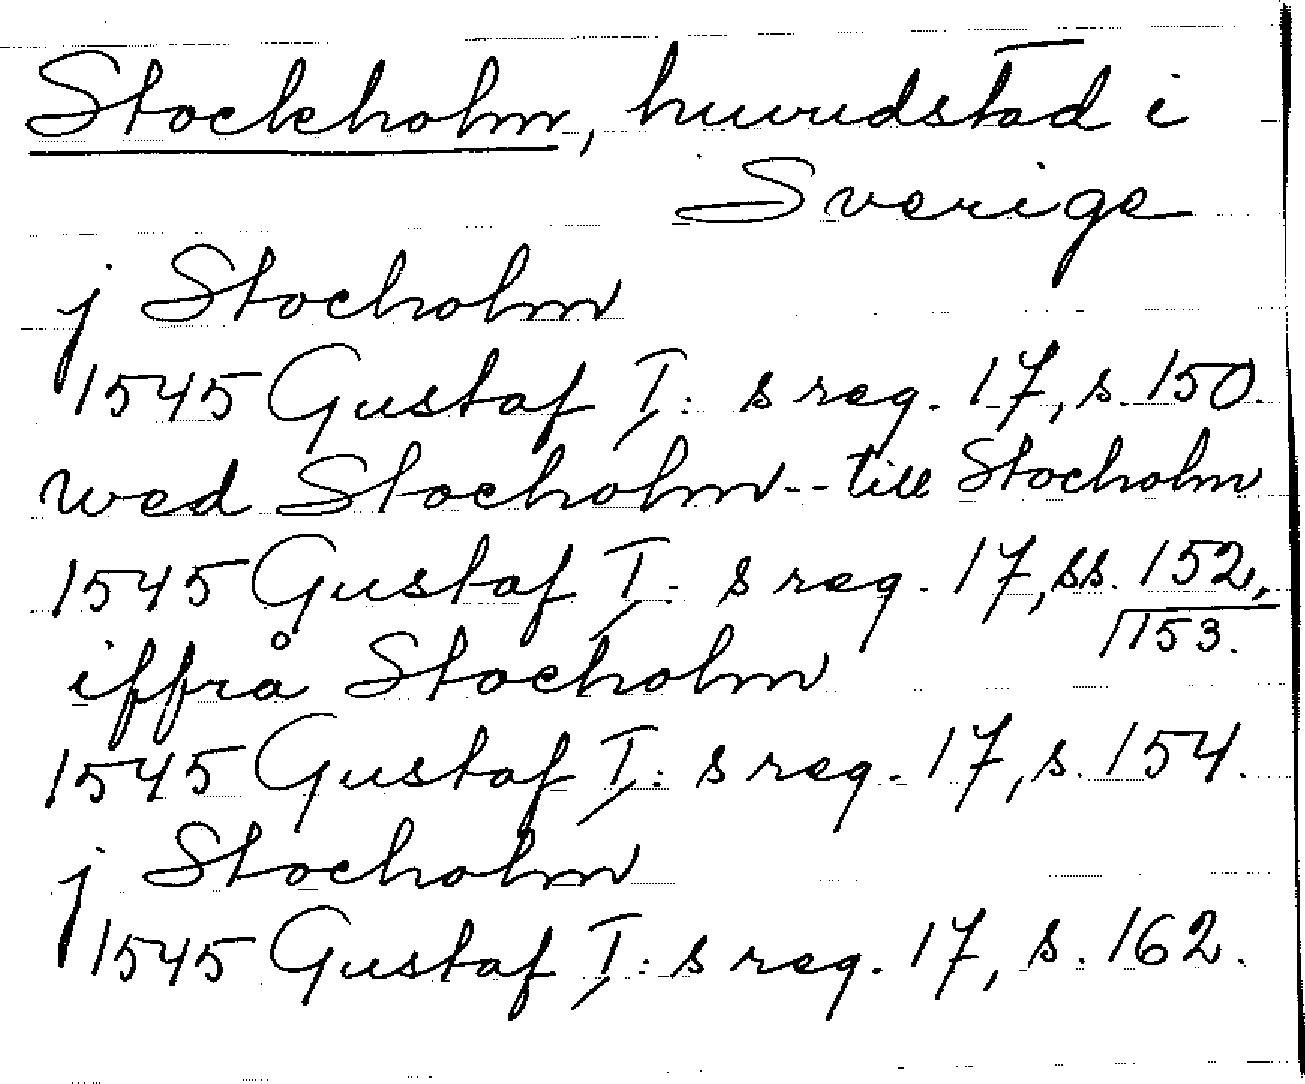 Stockholm, huvudstad i
Sverige
j Stocholm
1545 Gustaf I:s reg. 17, s. 150.
wed Stocholm -- till Stocholm
1545 Gustaf I:s reg. 17, ss. 152,
153.
iffrå Stocholm
1545 Gustaf I:s reg. 17, s. 154.
j Stocholm
1545 Gustaf I:s reg. 17, s. 162.